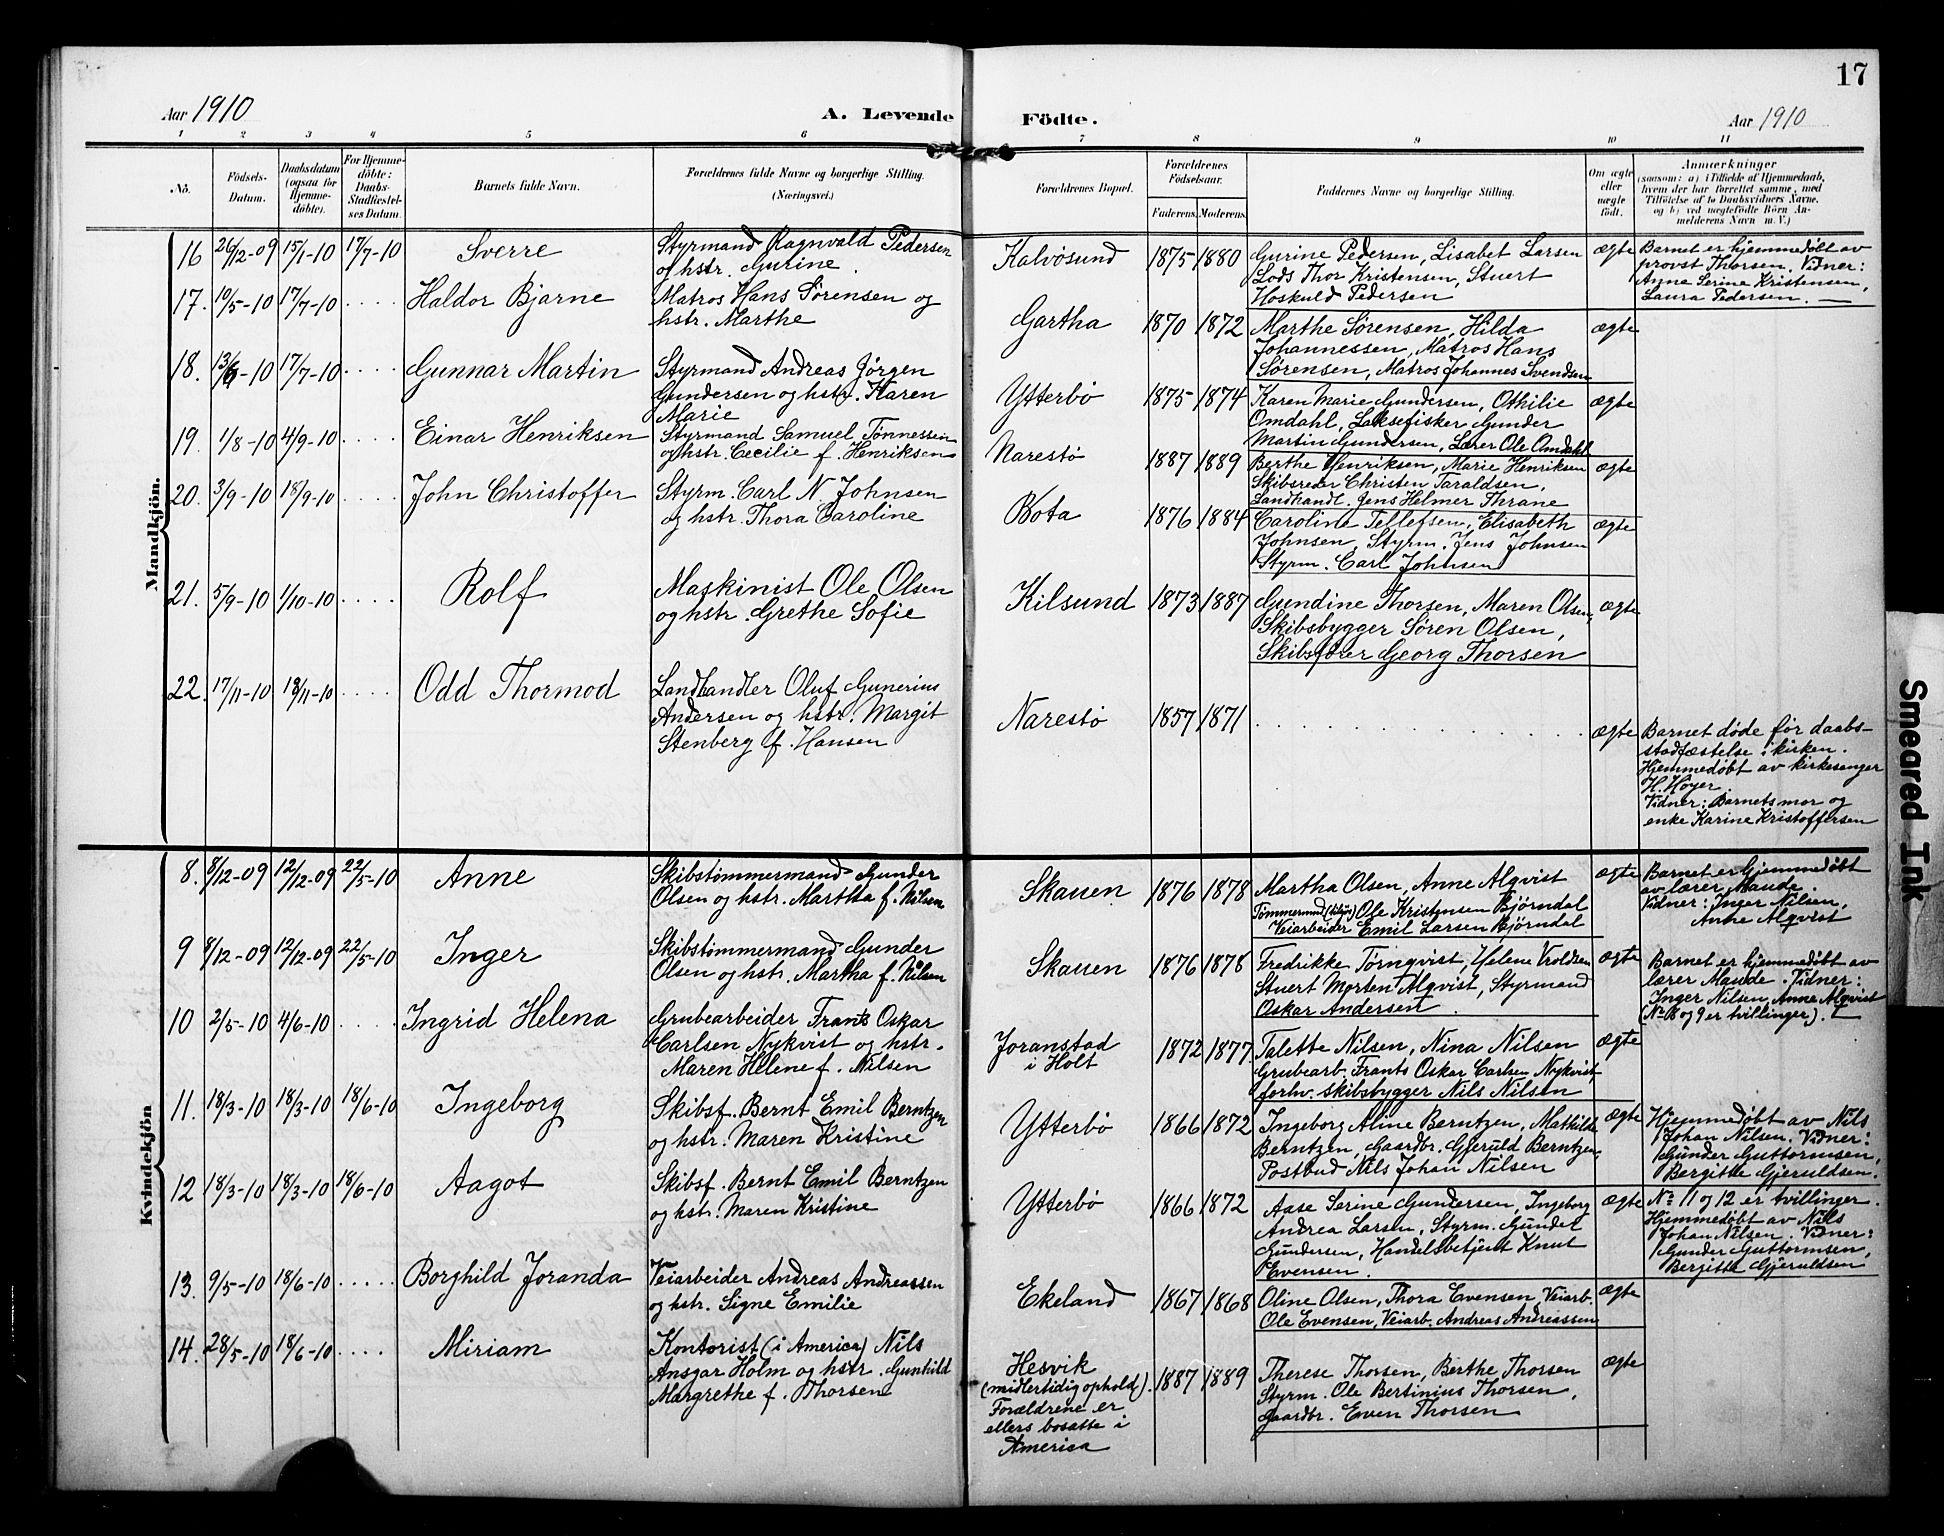 17
Aar 1910
A. Levende Födte.
Aar 1910
1 2 3 4 5 6 7 8 9 10 11
No.
Födsels-
Datum.
Daabsdatum
(ogsaa for
Hjemme-
döbte).
For Hjemme-
döbte:
Daabs-
Stadfæstel-
ses Datum.
Barnets fulde Navn.
Forældrenes fulde Navne og borgerlige Stilling.
(Næringsvei.)
Forældrenes Bopæl.
Forældrenes
Födselsaar.
Faderens. Moderens.
Faddernes Navne og borgerlige Stilling.
Om ægte
eller
uægte
födt.
Anmærkninger
(saasom: a) i Tilfælde af Hjemmedaab,
hvem der har forrettet samme, med
Tilföielse af to Daabsvidners Navne,
og b) ved uægtefödte Börn An-
melderens Navn m. V.)
Mandkjön.
16 26/12-09 15/1-10 17/7-10 Sverre
Styrmand Ragnvald Pedersen
og hstr. Gurine.
Kalvøsund 1875 1880
Gurine Pedersen, Lisabet Larsen
Lods Thor Kristensen, Stuert
Hoskuld Pedersen
ægte
Barnet er hjemmedøbt av
provst Thorsen. Vidner:
Anne Serine Kristensen,
Laura Pedersen. —
17. 19/5-10 17/7-10 . . . . Haldor Bjarne
Matros Hans Sørensen og
hstr. Marthe
Gartha 1870 1872
Marthe Sørensen, Hilda
Johannessen, Matros Hans
Sørensen, Matros Johannes Svendsen
ægte
18. 13/6-10 17/7-10 . . . . Gunnar Martin
Styrmand Andreas Jörgen
Gundersen og hstr. Karen
Marie
Ytterbö 1875 1874
Karen Marie Gundersen, Othilie
Omdahl, Laksefisker Gunder
Martin Gundersen, Lærer Ole Omdahl
ægte
19. 1/8-10 4/9-10 . . . . Einar Henriksen
Styrmand Samuel Tønnessen
og hstr. Cecilie f. Henriksen
Narestø 1887 1889
Berthe Henriksen, Marie Henriksen
Skibsreder Christen Taraldsen,
Landhandl. Jens Helmer Thrane
ægte
20. 3/9-10 18/9-10 . . . . John Christoffer
Styrm. Carl N. Johnsen
og hstr. Thora Caroline
Bota 1876 1884
Caroline Tellefsen, Elisabeth
Johnsen, Styrm. Jens Johnsen
Styrm. Carl Johnsen
ægte
21. 5/9-10 1/10-10 . . . . Rolf
Maskinist Ole Olsen
og hstr. Grethe Sofie
Kilsund 1873 1887
Gundine Thorsen, Maren Olsen,
Skibsbygger Sören Olsen,
Skibsfører Georg Thorsen
ægte
22. 17/11-10 18/11-10 . . . . Odd Thormod
Landhandler Oluf Gunerius
Andersen og hstr. Margit
Stenberg f. Hansen
Narestø 1857 1871 . . . . . . . . . .
ægte
Barnet døde før daabs-
stadfæstelse i kirken.
Hjemmedøbt av kirkesanger
H. Høyer
Vidner: Barnets mor og
enke Karine Kristoffersen
Kvindekjön
8. 8/12-09 12/12-09 22/5-10 Anne
Skibstømmermand Gunder
Olsen og hstr. Martha f. Nilsen
Skauen 1876 1878
Martha Olsen, Anne Alqvist
Tømmermand (tilsjøs) Ole Kristensen Bjørndal
Veiarbeider Emil Larsen Bjørndal
ægte
Barnet er hjemmedöbt
av lærer Maude.
Vidner: Inger Nilsen,
Anne Alqvist
9 8/12-09 12/12-09 22/5-10 Inger
Skibstømmermand Gunder
Olsen og hstr. Martha f. Nilsen
Skauen 1876 1878
Fredrikke Törnqvist, Helene Vroldsen
Stuert Morten Alqvist, Styrmand
Oskar Andersen.
ægte
Barnet er hjemmedøbt av
lærer Maude. Vidner:
Inger Nilsen, Anne Alqvist
(No 8 og 9 er tvillinger).
10 2/5-10 4/6-10 . . . . Ingrid Helena
Grubearbeider Frants Oskar
Carlsen Nykvist og hstr.
Maren Helene f. Nilsen
Joranstad
i Holt
1872 1877
Talette Nilsen, Nina Nilsen
Grubearb. Frants Oskar Carlsen Nykvist,
forhv. skibsbygger Nils Nilsen
ægte
11. 18/3-10 18/3-10 18/6-10 Ingeborg
Skibsf. Bernt Emil Berntzen
og hstr. Maren Kristine
Ytterbö 1866 1872
Ingeborg Aline Berntzen, Mathilde
Berntzen, Gaardbr. Gjeruld Berntzen,
Postbud Nils Johan Nilsen
ægte
Hjemmedøbt av Nils
Johan Nilsen. Vidner:
Gunder Guttormsen,
Bergitte Gjeruldsen.
12 18/3-10 18/3-10 18/6-10 Aagot
Skibsf. Bernt Emil Berntzen
og hstr. Maren Kristine
Ytterbö 1866 1872
Aase Serine Gundersen, Ingeborg
Andrea Larsen, Styrm. Gunder
Gundersen, Handelsbetjent Knut
Evensen.
ægte
No 11 og 12 er tvillinger.
Hjemmedøbt av Nils
Johan Nilsen. Vidner:
Gunder Guttormsen,
Bergitte Gjeruldsen
13. 9/5-10 18/6-10 . . . . . Borghild Joranda
Veiarbeider Andreas Andreassen
og hstr. Signe Emilie
Ekeland 1867 1868
Oline Olsen, Thora Evensen, Veiarb.
Ole Evensen, Veiarb. Andreas Andreassen
ægte
14. 28/5-10 18/6-10 . . . . Miriam
Kontorist (i America) Nils
Ansgar Holm og hstr. Gunhild
Margrethe f. Thorsen
Hesvik
(midlertidig ophold).
Forældrene er
ellers bosatte i
America
1887 1889
Therese Thorsen, Berthe Thorsen
Styrm. Ole Bertinius Thorsen,
Gaardbr. Even Thorsen
ægte
Smeared Ink